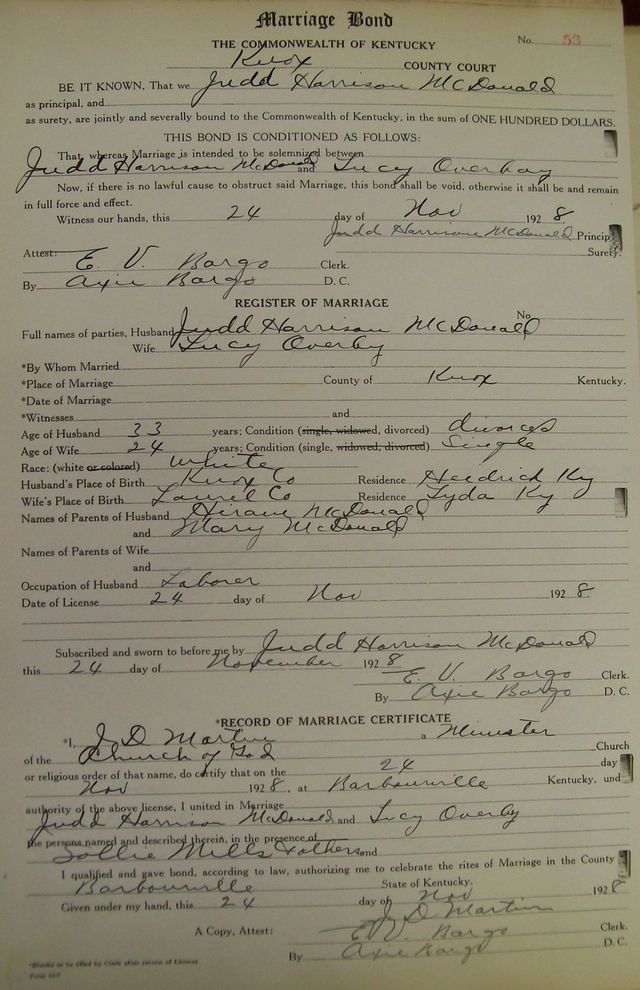 Marriage Bond
THE COMMONWEALTH OF KENTUCKY No. 53
Knox COUNTY COURT
BE IT KNOWN, That we Judd Harrison McDonald
as principal, and
as surety, are jointly and severally bound to the Commonwealth of Kentucky, in the sum of ONE HUNDRED DOLLARS.
THIS BOND IS CONDITIONED AS FOLLOWS:
That whereas Marriage is intended to be solemnized between
Judd Harrison McDonald and Lucy Overbay
Now, if there is no lawful cause to obstruct said Marriage, this bond shall be void, otherwise it shall be and remain
in full force and effect.
Witness our hands, this 24 day of Nov 1928.
Judd Harrison McDonald Princip
Surety.
Attest: E. V. Bargo Clerk.
By Axie Bargo D. C.
REGISTER OF MARRIAGE
No
Full names of parties, Husband Judd Harrison McDonald
Wife Lucy Overby
*By Whom Married
*Place of Marriage County of Knox Kentucky.
*Date of Marriage
*Witnesses and
Age of Husband 33 years; Condition (single, widowed, divorced) divorced
Age of Wife 24 years; Condition (single, widowed, divorced) Single
Race: (white or colored) White
Husband's Place of Birth Knox Co Residence Heidrick Ky
Wife's Place of Birth Laurel Co Residence Lyda Ky
Names of Parents of Husband Hiram McDonald
and Mary McDonald
Names of Parents of Wife
and
Occupation of Husband Laborer
Date of License 24 day of Nov 1928.
Subscribed and sworn to before me by Judd Harrison McDonald
this 24 day of November 1928
E. V. Bargo Clerk.
By Axie Bargo D. C.
*RECORD OF MARRIAGE CERTIFICATE
*I, J D Martin a Minister
of the Church of God Church
or religious order of that name, do certify that on the 24 day
Nov 1928, at Barbourville Kentucky, und
authority of the above license, I united in Marriage
Judd Harrison McDonald and Lucy Overby
the persons named and described therein, in the presence of
Mills & others and
I qualified and gave bond, according to law, authorizing me to celebrate the rites of Marriage in the County
Barbourville State of Kentucky.
Given under my hand, this 24 day of Nov 1928
J D Martin
A Copy, Attest: E. V. Bargo Clerk.
By Axie Bargo D. C.
*Blanks to be filled by Clerk after return of License